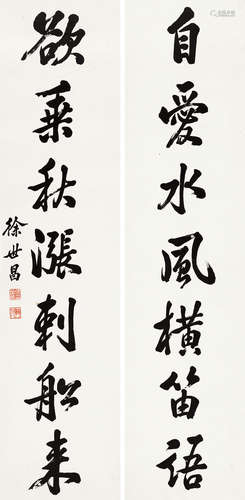 自愛水風橫笛語
欲乘秋漲刺船来
徐世昌